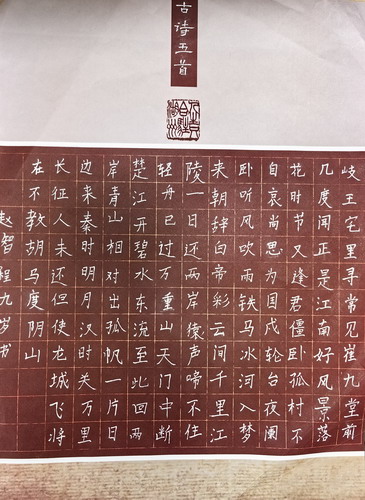 古诗五首
岐王宅里寻常见崔九堂前
几度闻正是江南好风景落
花时节又逢君僵卧孤村不
自哀尚思为国戍轮台夜阑
卧听风吹雨铁马冰河入梦
来朝辞白帝彩云间千里江
陵一日还两岸猿声啼不住
轻舟已过万重山天门中断
楚江开碧水东流至此回两
岸青山相对出孤帆一片日
边来秦时明月汉时关万里
长征人未还但使龙城飞将
在不教胡马度阴山
赵智程九岁书